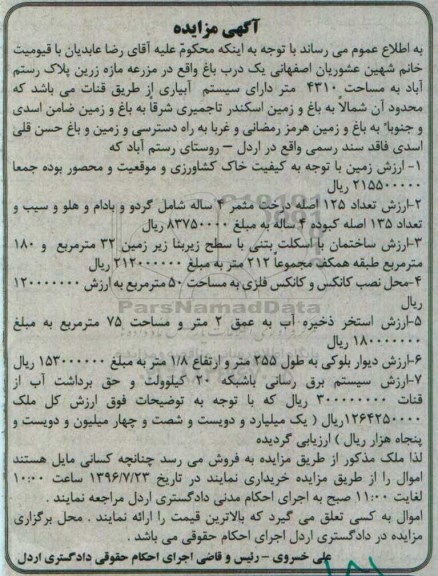 آگهی مزایده
به اطلاع عموم می رساند با توجه به اینکه محکوم علیه آقای رضا عابدیان با قیومیت
خانم شهین عشوریان اصفهانی یک درب باغ واقع در مزرعه مازه زرین پلاک رستم
آباد به مساحت ۴۳۱۰ متر دارای سیستم آبیاری از طریق قنات می باشد که
محدود آن شمالاً به باغ و زمین اسکندر تاجمیری شرقاً به باغ و زمین ضامن اسدی
و جنوباً به باغ و زمین هرمز رمضانی و غربا به راه دسترسی و زمین و باغ حسن قلی
اسدی فاقد سند رسمی واقع در اردل – روستای رستم آباد که
۱- ارزش زمین با توجه به کیفیت خاک کشاورزی و موقعیت و محصور بوده جمعا
۲۱۵۵۰۰۰۰۰ ریال
۲-ارزش تعداد ۱۲۵ اصله درخت مثمر ۴ ساله شامل گردو و بادام و هلو و سیب و
تعداد ۱۳۵ اصله کبوده ۴ ساله به مبلغ ۸۳۷۵۰۰۰۰ ریال
۳-ارزش ساختمان با اسکلت بتنی با سطح زیربنا زیر زمین ۳۲ مترمربع و ۱۸۰
مترمربع طبقه همکف مجموعاً ۲۱۲ متر به مبلغ ۲۱۲۰۰۰۰۰۰ ریال
۴-محل نصب کانکس و کانکس فلزی به مساحت ۵۰ مترمربع به ارزش ۱۲۰۰۰۰۰۰۰
ریال
۵-ارزش استخر ذخیره آب به عمق ۲ متر و مساحت ۷۵ مترمربع به مبلغ
۱۸۰۰۰۰۰۰۰ ریال
۶-ارزش دیوار بلوکی به طول ۲۵۵ متر و ارتفاع ۱/۸ متر به مبلغ ۱۵۳۰۰۰۰۰۰ ریال
۷-ارزش سیستم برق رسانی باشبکه ۲۰ کیلوولت و حق برداشت آب از
قنات ۳۰۰۰۰۰۰۰۰ ریال که با توجه به توضیحات فوق ارزش کل ملک
۱۲۶۴۲۵۰۰۰۰ریال ( یک میلیارد و دویست و شصت و چهار میلیون و دویست و
پنجاه هزار ریال ) ارزیابی گردیده
لذا ملک مذکور از طریق مزایده به فروش می رسد چنانچه کسانی مایل هستند
اموال را از طریق مزایده خریداری نمایند در تاریخ ۱۳۹۶/۷/۲۳ ساعت ۱۰:۰۰
لغایت ۱۱:۰۰ صبح به اجرای احکام مدنی دادگستری اردل مراجعه نمایند .
اموال به کسی تعلق می گیرد که بالاترین قیمت را ارائه نمایند . محل برگزاری
مزایده در دادگستری اردل اجرای احکام حقوقی می باشد .
علی خسروی – رئیس و قاضی اجرای احکام حقوقی دادگستری اردل
ParsNamadData